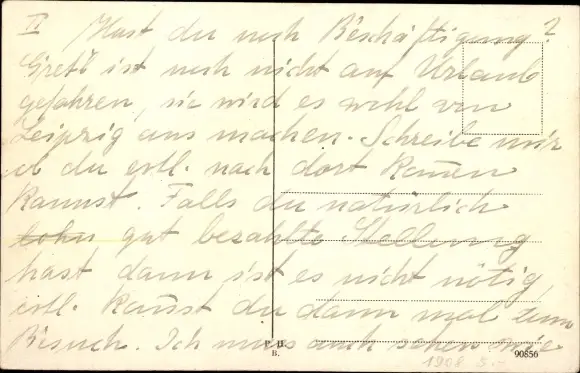 II Hast du noch Beschäftigung?
Gretl ist noch nicht auf Urlaub
gefahren, sie wird es wohl von
Leipzig aus machen. Schreibe mir
ob du evtl. nach dort kom̄en
kannst. Falls du natürlich
gut bezahlte Stellung
hast dann ist es nicht nötig,
evtl. kannst du dann mal zum
Besuch. Ich muss auch sehen wie
P. H.
B.
90856
1908 5.-